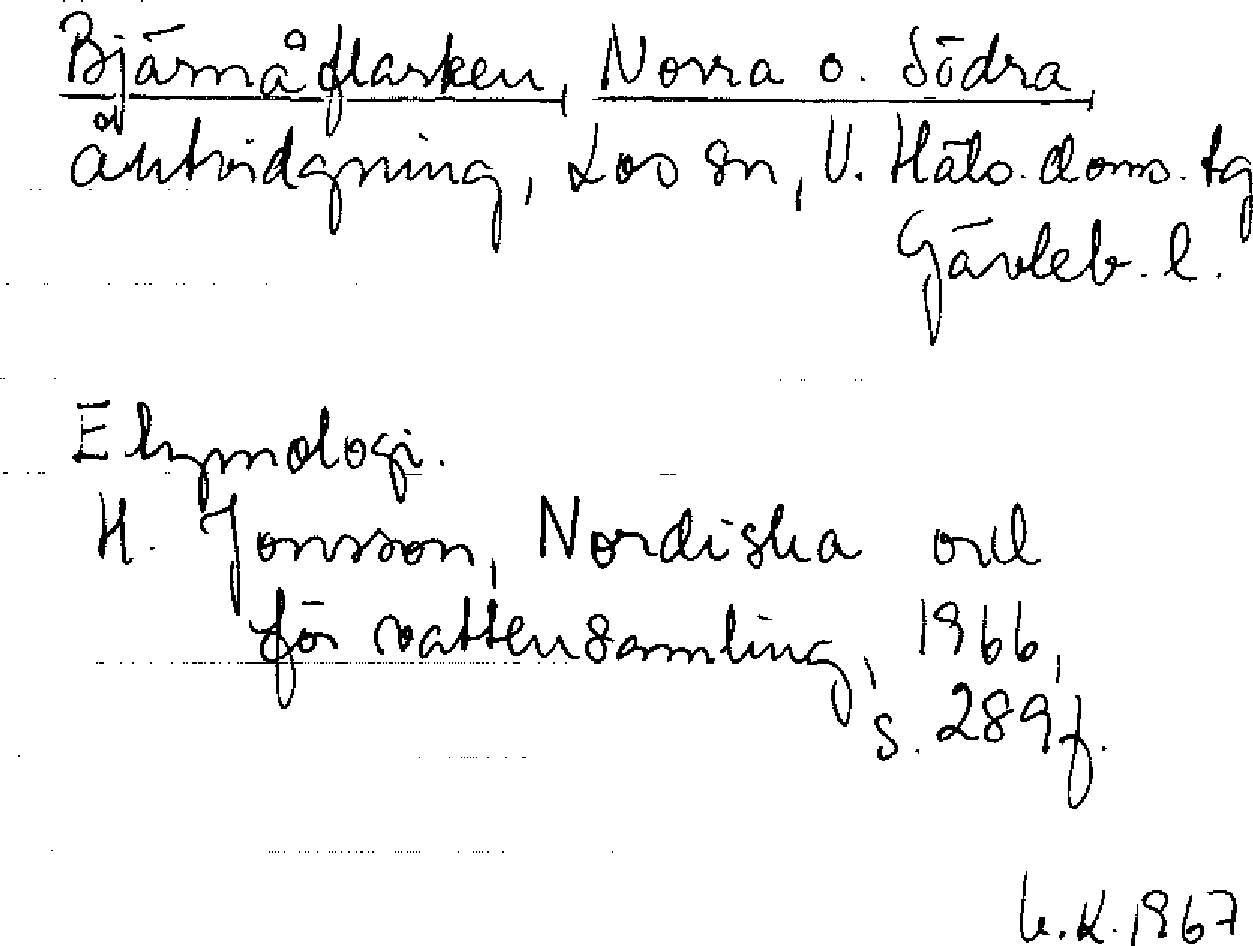 Bjärnåflarken, Norra o. Södra
åutvidgning, Los sn, V. Häls. doms. tg
Gävleb. l.
Etymologi.
H. Jonsson, Nordiska ord
för vattensamling, 1966,
s. 289 f.
K. 1967